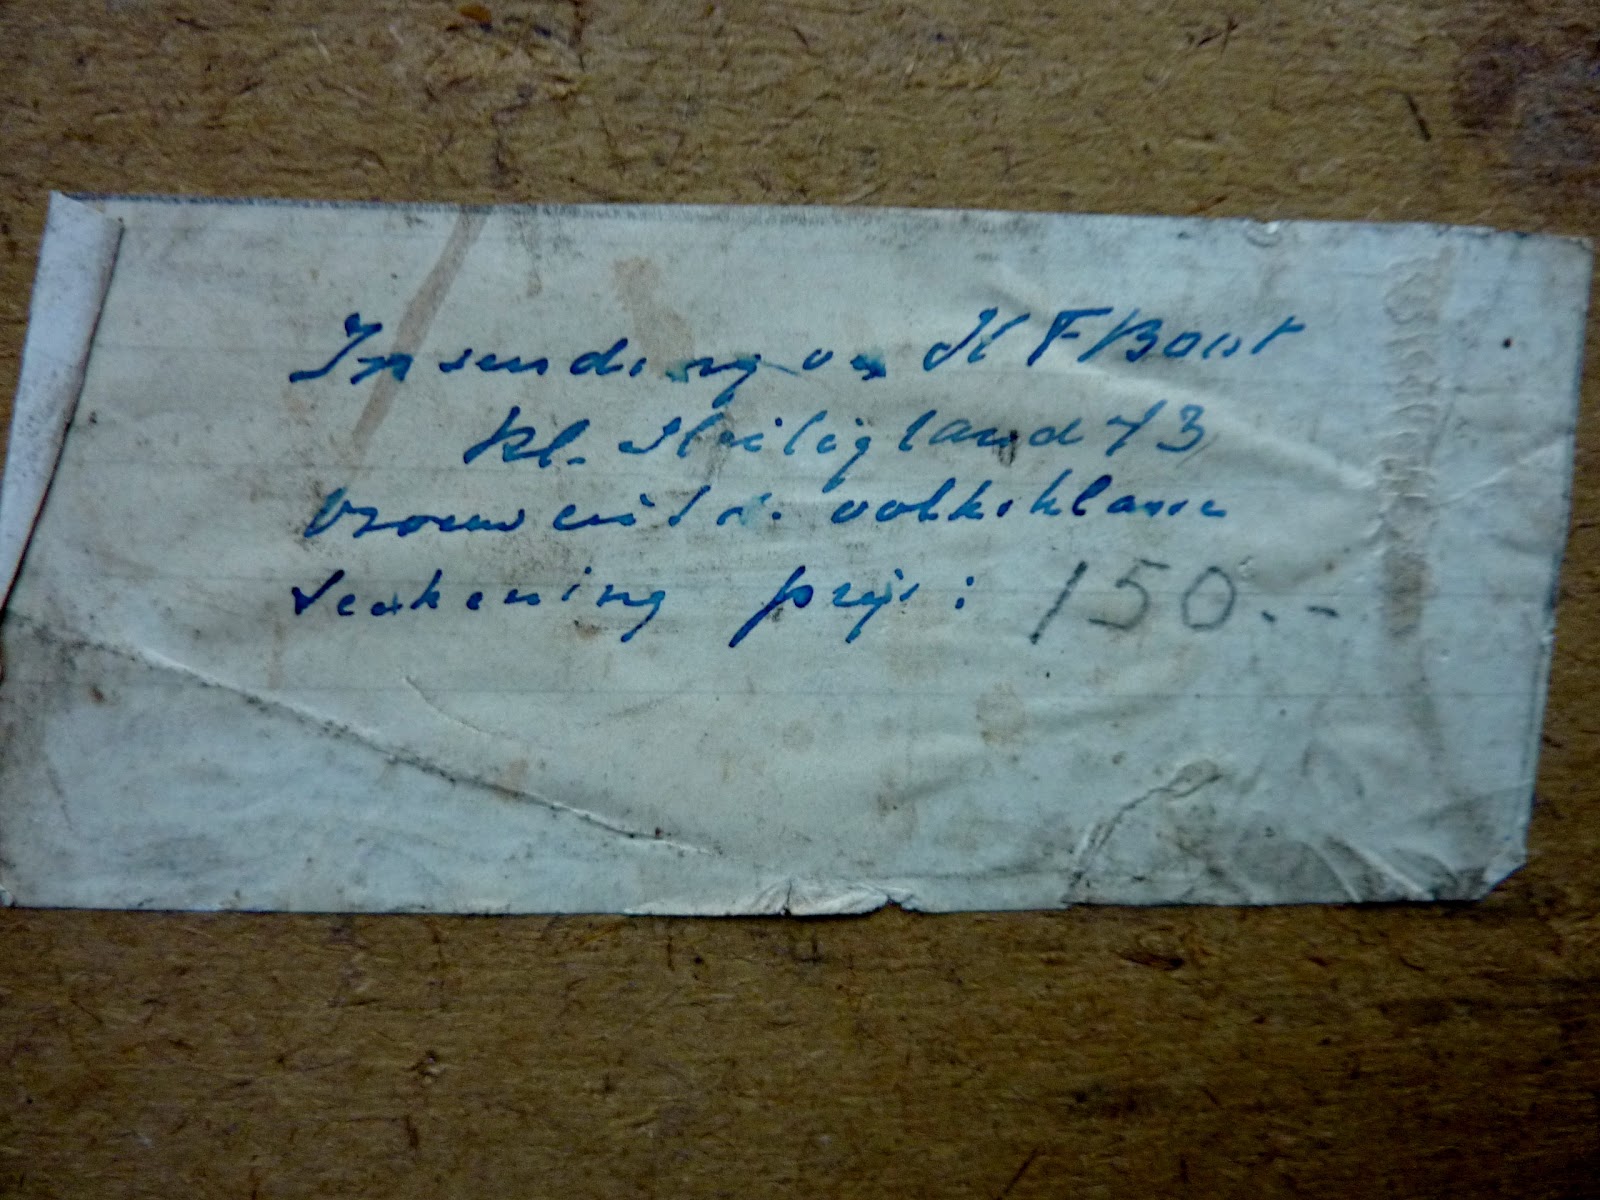 Inzending van H F Boot
kl. Heiligland 73
Vrouw uit d. volksklasse
teekening prijs: 150.-